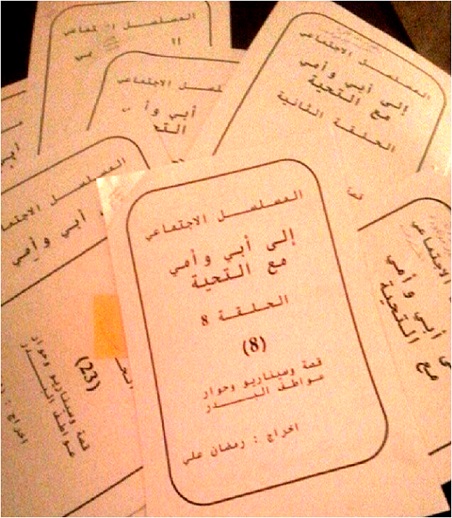 المسلسل الاجتماعي
إلى أبي وأمي
مع التحية
الحلقة 8
(8)
قصة وسيناريو وحوار
عواطف البدر
اخراج : رمضان علي
المسلسل الاجتماعي
إلى أبي وأمي
مع التحية
الحلقة الثانية
قصة
المسلسل الاجتماعي
المسلسل الاجتماعي
أبي وأ
التحـ
أبي وأمي
(23)
قصة وسيناريو وحوار
عواطف البدر
اخراج :
الاجتماعي
أبي وأمي
مع التحية